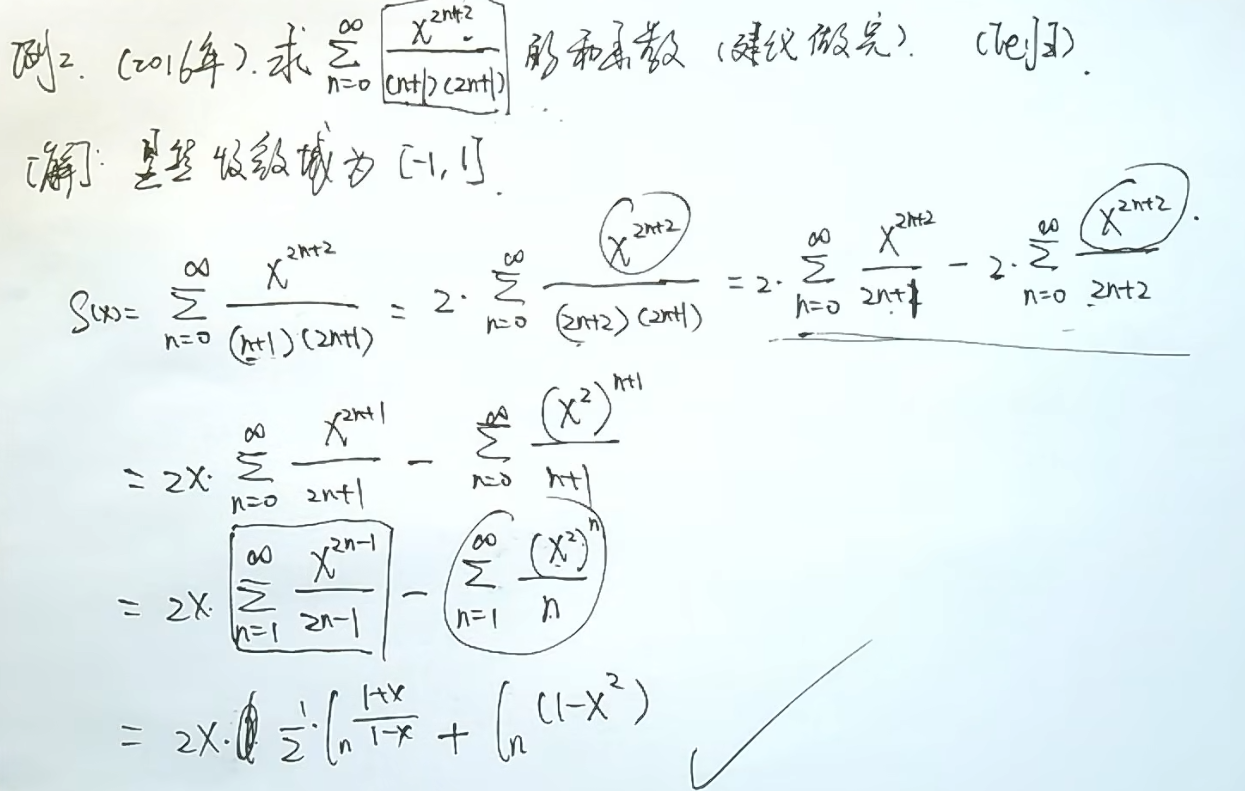 例2. (2016年). 求 $\sum_{n=0}^{\infty} \frac{x^{2n+2}}{(n+1)(2n+1)}$ 的和函数 (建议做完).
[解]: 显然收敛域为 [-1, 1].
$S(x) = \sum_{n=0}^{\infty} \frac{x^{2n+2}}{(n+1)(2n+1)} = 2 \cdot \sum_{n=0}^{\infty} \frac{x^{2n+2}}{(2n+2)(2n+1)} = 2 \cdot \sum_{n=0}^{\infty} \frac{x^{2n+2}}{2n+1} - 2 \cdot \sum_{n=0}^{\infty} \frac{x^{2n+2}}{2n+2}.$
$= 2x \cdot \sum_{n=0}^{\infty} \frac{x^{2n+1}}{2n+1} - \sum_{n=0}^{\infty} \frac{(x^2)^{n+1}}{n+1}$
$= 2x \cdot \sum_{n=1}^{\infty} \frac{x^{2n-1}}{2n-1} - \sum_{n=1}^{\infty} \frac{(x^2)^n}{n}$
$= 2x \cdot \frac{1}{2} \cdot \ln \frac{1+x}{1-x} + \ln (1-x^2)$